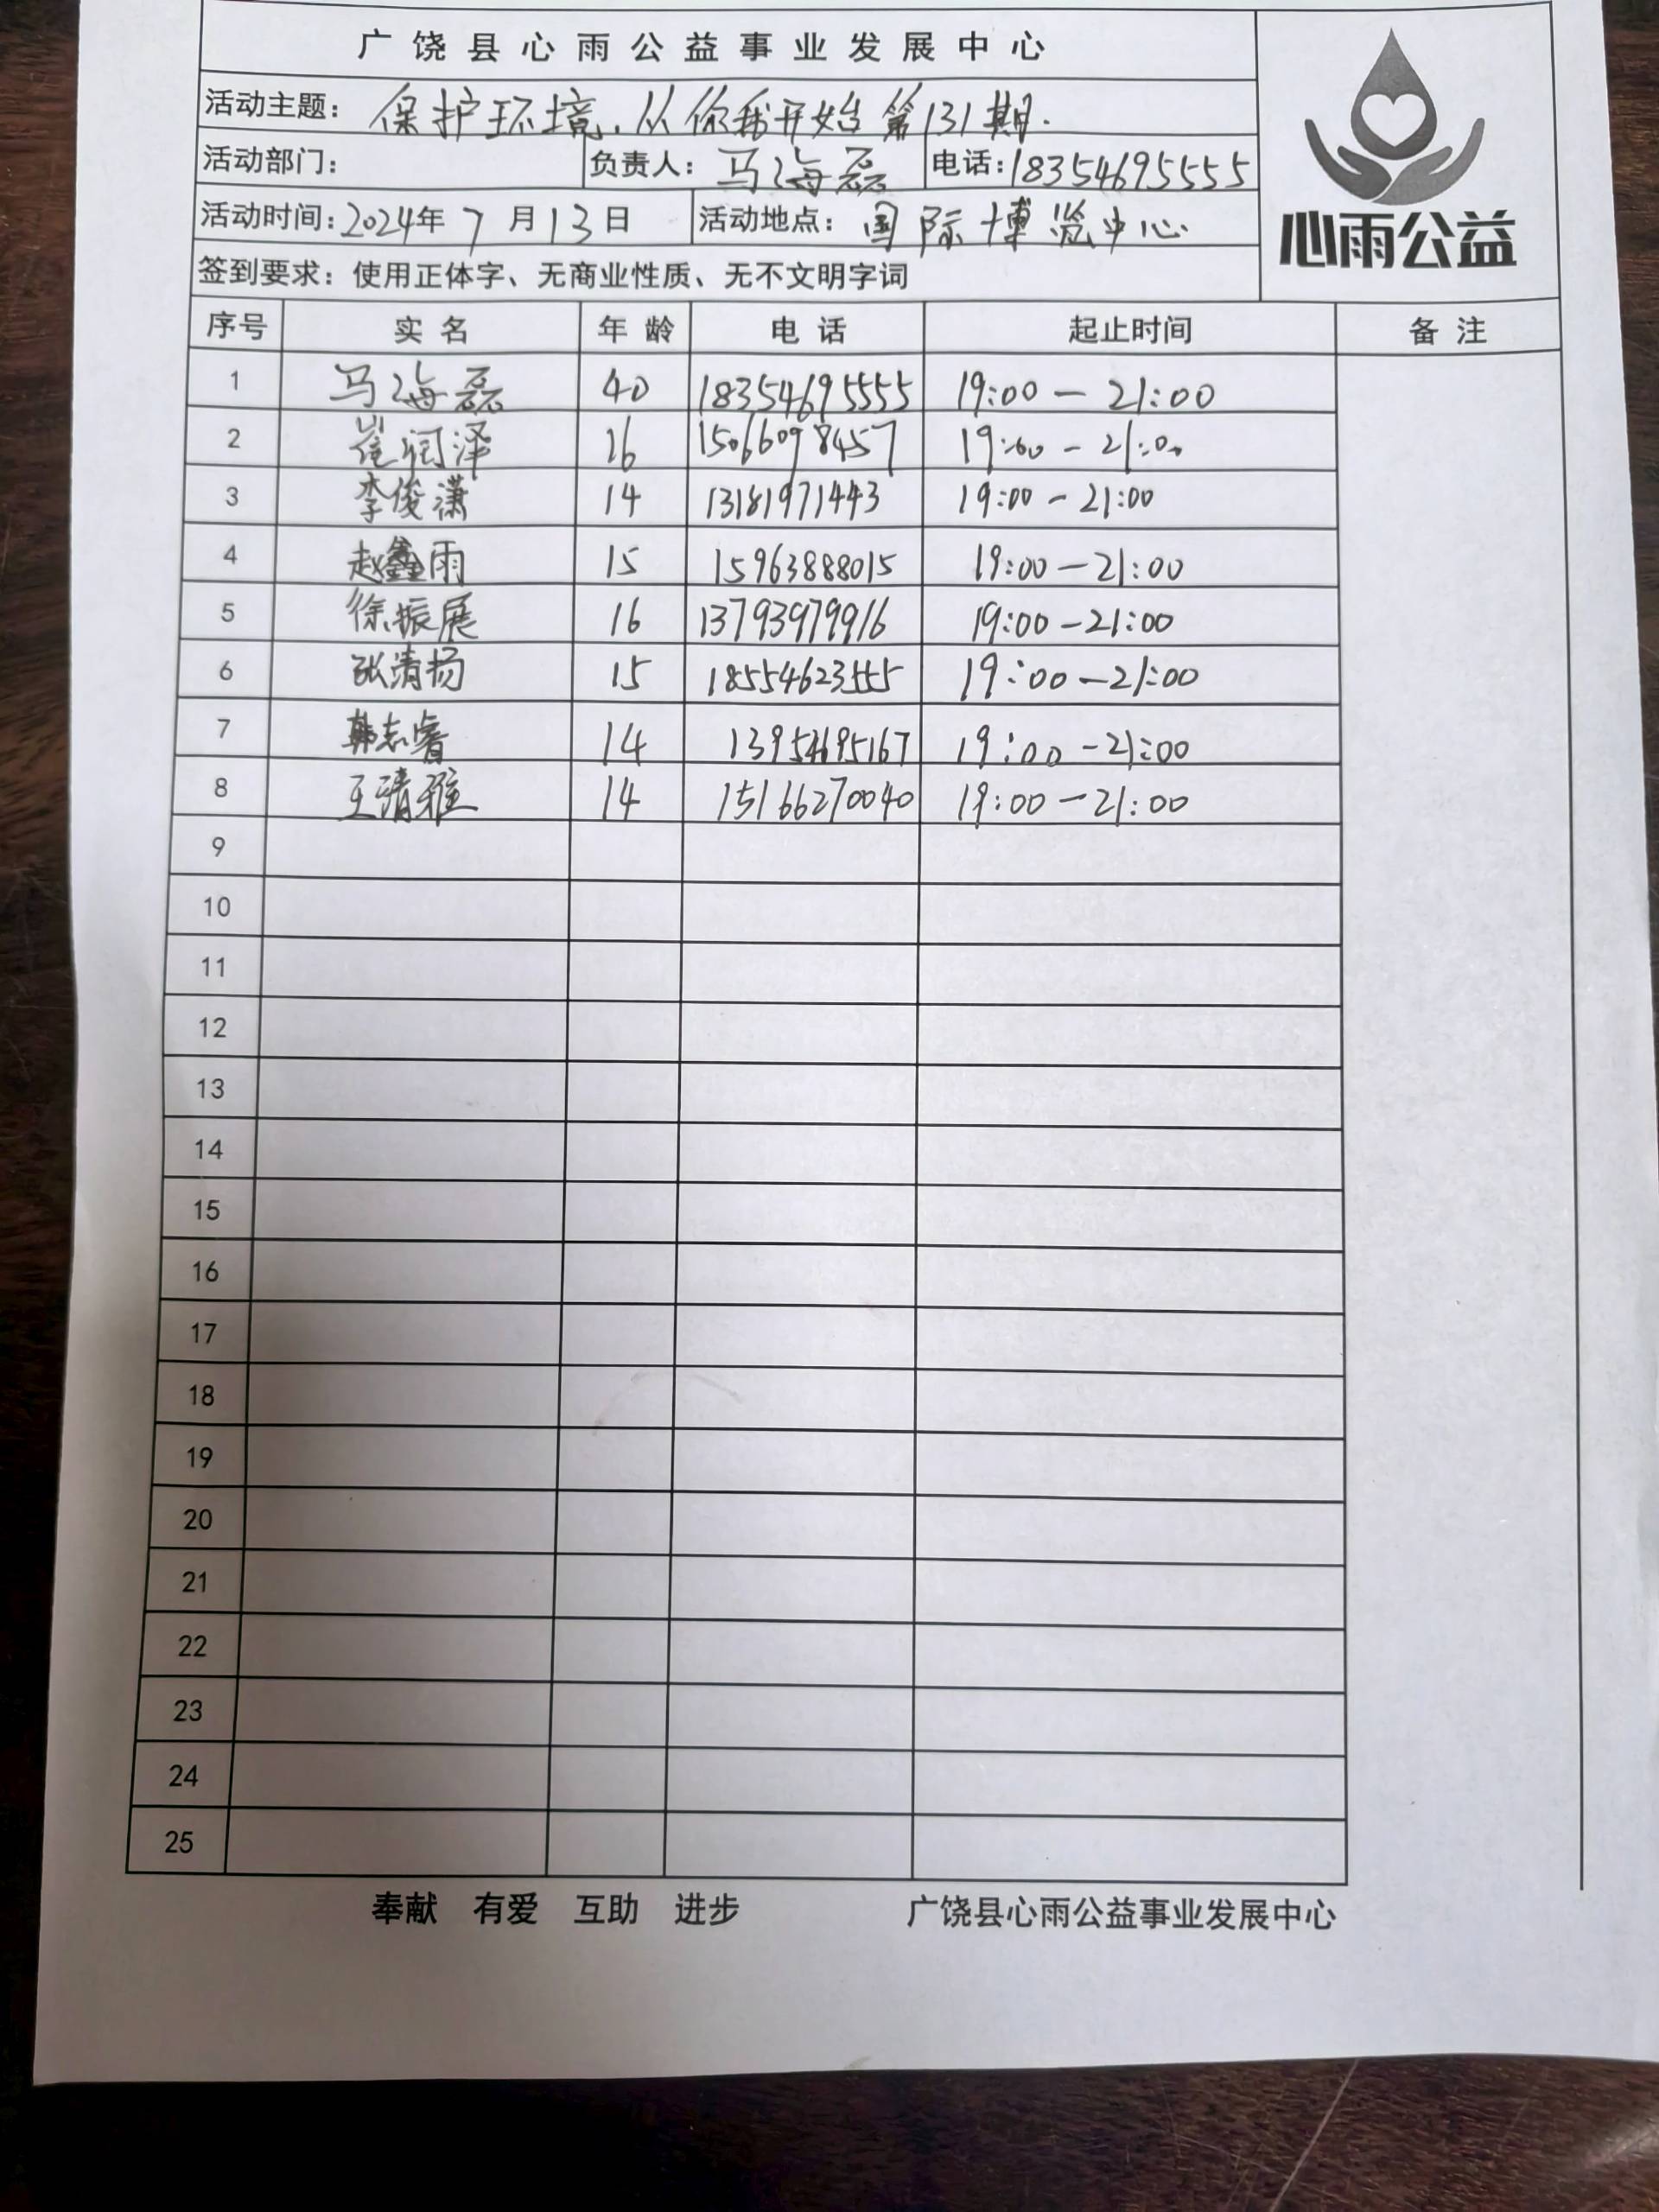 广饶县心雨公益事业发展中心
活动主题：保护环境.从你我开始第131期.
活动部门： 负责人：马海磊 电话：18354695555
活动时间：2024年7月13日 活动地点：国际博览中心
心雨公益
签到要求：使用正体字、无商业性质、无不文明字词
序号 实名 年龄 电话 起止时间 备注
1 马海磊 40 18354695555 19:00－21:00
2 崔润泽 16 15066098457 19:00－21:00
3 李俊潇 14 13181971443 19:00－21:00
4 赵鑫雨 15 15963888015 19:00－21:00
5 徐振展 16 13793979916 19:00－21:00
6 张清扬 15 18554623555 19:00－21:00
7 韩志睿 14 13954695167 19:00－21:00
8 王清雅 14 15166270040 19:00－21:00
9
10
11
12
13
14
15
16
17
18
19
20
21
22
23
24
25
奉献 有爱 互助 进步 广饶县心雨公益事业发展中心